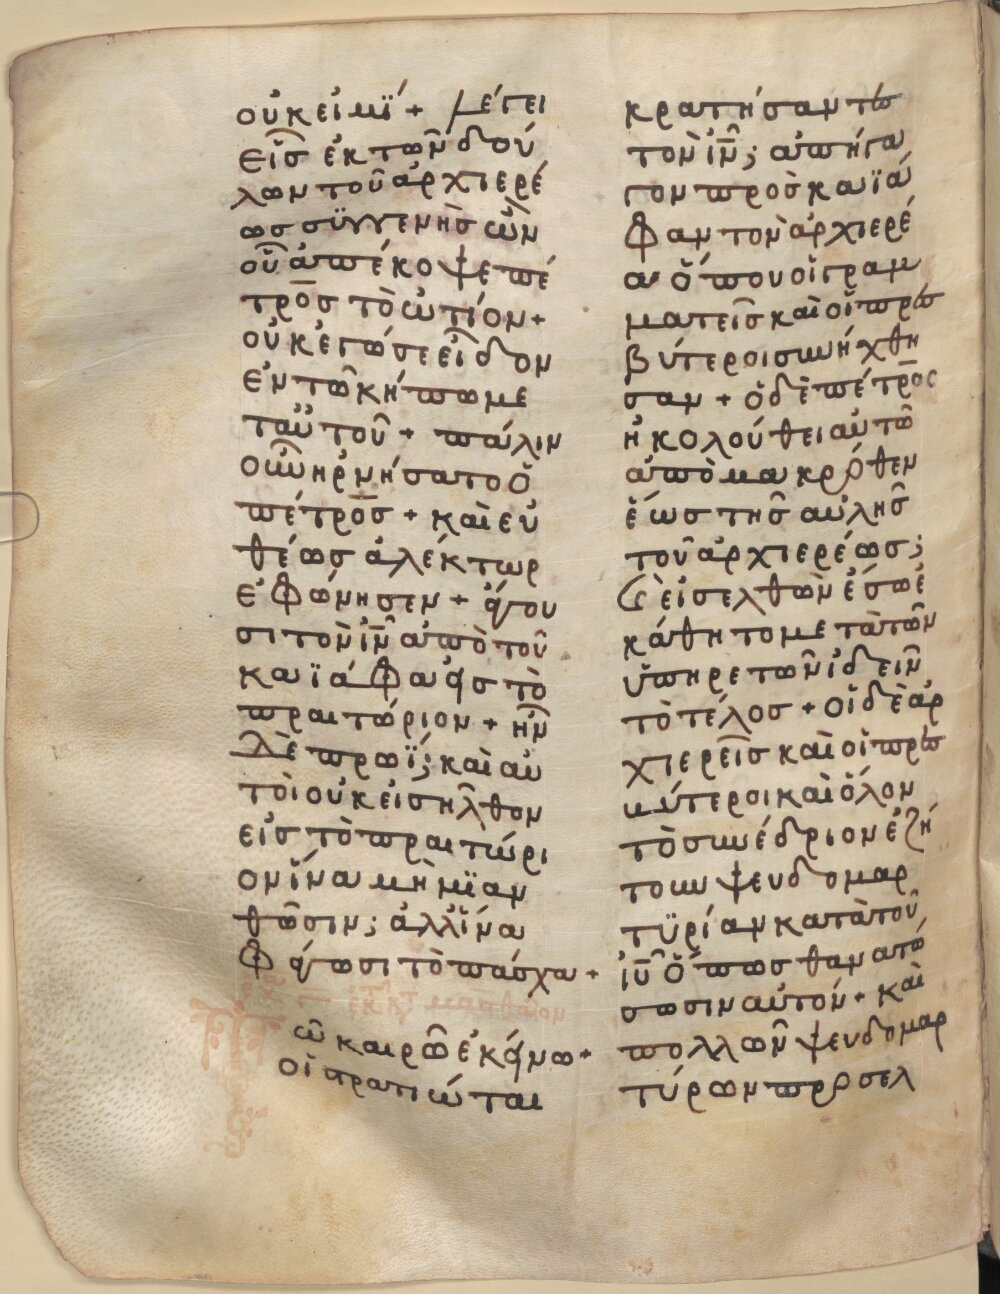 οὐκ εἰμί + λέγει
εἷς ἐκ τῶν δού
λων τοῦ ἀρχιερέ
ως συγγενὴς ὢν
οὗ ἀπέκοψε πέ
τρος τὸ ὠτίον +
οὐκ ἐγώ σε εἶδον
ἐν τῶ κήπω με
τ αὐτοῦ + πάλιν
οὖν ἠρνήσατο ὁ
πέτρος + καὶ εὐ
θέως ἀλέκτωρ
ἐφώνησεν + ἄγου
σι τὸν ιν̅ ἀπὸ τοῦ
καϊάφα εἰς τὸ
πραιτώριον + ἦν
δὲ πρωΐ; καὶ αὐ
τοὶ οὐκ εἰσῆλθον
εἰς τὸ πραιτώρι
ον ἵνα μὴ μϊαν
θῶσιν; ἀλλ ἵνα
φάγωσι τὸ πάσχα +
ῶ καιρῶ ἐκείνω +
οἱ στρατιῶται
κρατήσαντες
τὸν ιν̅; ἀπήγα
γον πρὸς καϊά
φαν τὸν ἀρχιερέ
α ὅπου οἱ γραμ
ματεῖς καὶ οἱ πρεσ
βύτεροι συνήχθη
σαν + ὁ δὲ πέτρος
ἠκολούθει αὐτῶ
ἀπὸ μακρόθεν
ἕως τῆς αὐλῆς
τοῦ ἀρχιερέως;
καὶ εἰσελθὼν ἔσω ἐ
κάθητο μετὰ τῶν
ὑπηρετῶν ἰδεῖν
τὸ τέλος + οἱ δὲ ἀρ
χιερεῖς καὶ οἱ πρεσ
βύτεροι καὶ ὅλον
τὸ συνέδριον ἐζή
τουν ψευδομαρ
τϋρίαν κατὰ τοῦ
ιυ̅ ὅπως θανατώ
σωσιν αὐτόν + καὶ
πολλῶν ψευδομαρ
τύρων προσελ